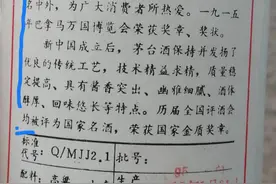 名中外，为广大消费者所热爱。一九一五
年巴拿马万国博览会荣获奖章、奖状。
新中国成立后，茅台酒保持并发扬了
优良的传统工艺，技术精益求精，质量稳
定提高、具有酱香突出、幽雅细腻、酒体
醇厚、回味悠长等特点。历届全国评酒会
均被评为国家名酒，荣获国家金质奖章。
标准
代号：Q/MJJ2.1 批号：
配料：高粱 生产